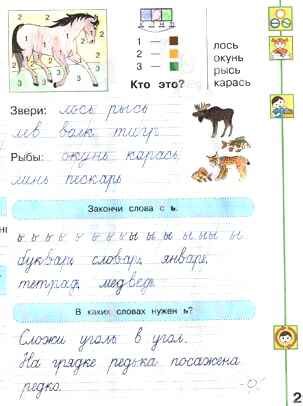 2 2 2
1 3 1 3
3
1 —
2 —
3 —
Кто это?
лось
окунь
рысь
карась
Звери: лось рысь
лев волк тигр
Рыбы: окунь карась
линь пескарь
Закончи слова с ь.
ь ь ь ь ь ь ь ь ь ы ы ы ы ы ы
букварь, словарь, январь,
тетрадь, медведь.
В каких словах нужен ь?
Сложи уголь в угол.
На грядке редька посажена
редко.
2